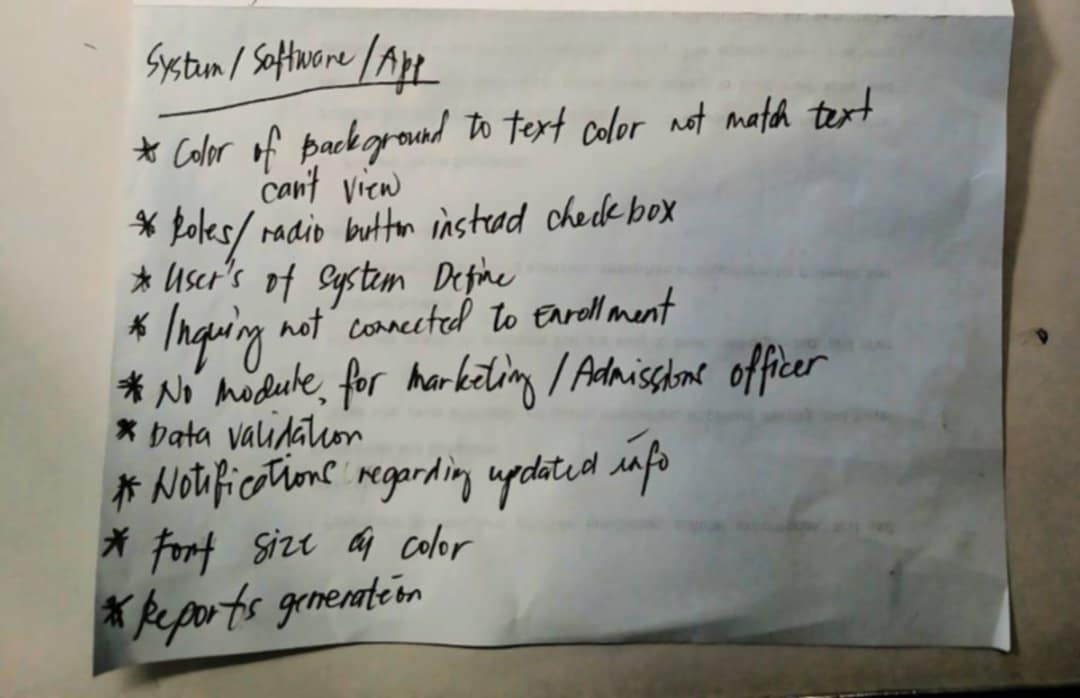 System/Software/App
* Color of Background to text color not match text
can't view
* Roles/radio button instead checkbox
* User's of System Define
* Inquiry not connected to Enrollment
* No module, for Marketing/Admissions officer
* Data validation
* Notifications regarding updated info
* Font size & color
* Reports generation